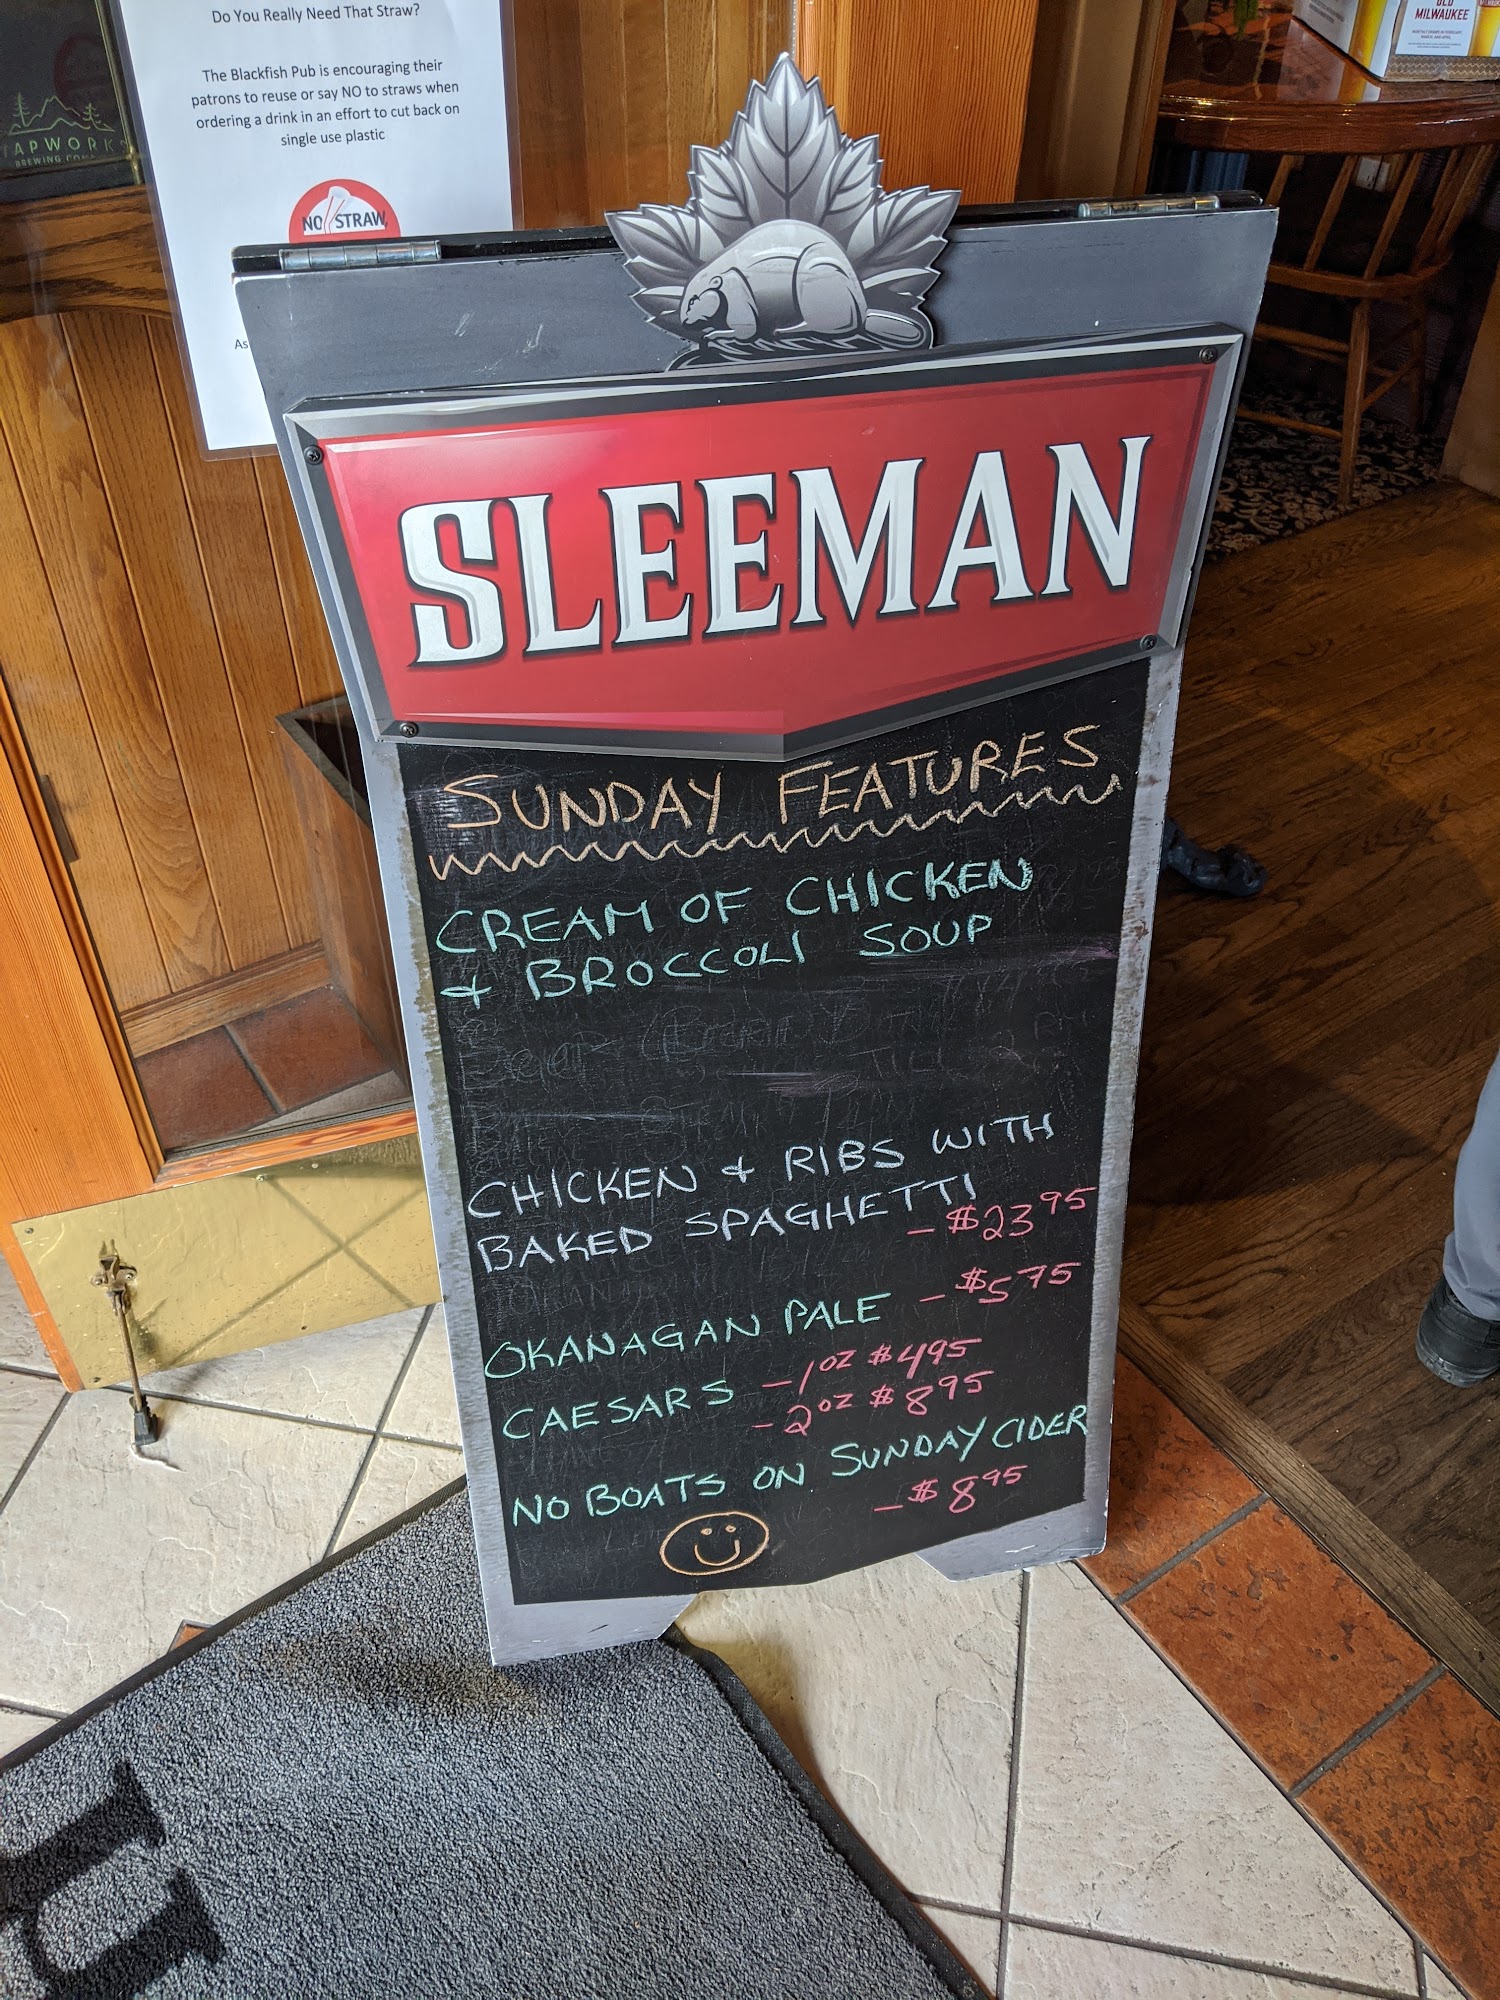 Do You Really Need That Straw?
The Blackfish Pub is encouraging their
patrons to reuse or say NO to straws when
ordering a drink in an effort to cut back on
single use plastic
NO STRAW
As
TAPWORKS
BREWING
OLD
MILWAUKEE
SLEEMAN
SUNDAY FEATURES
CREAM OF CHICKEN
& BROCCOLI SOUP
CHICKEN & RIBS WITH
BAKED SPAGHETTI - $23 95
OKANAGAN PALE - $5 75
CAESARS - 1 OZ $4 95
- 2 OZ $8 95
NO BOATS ON SUNDAY CIDER
- $8 95